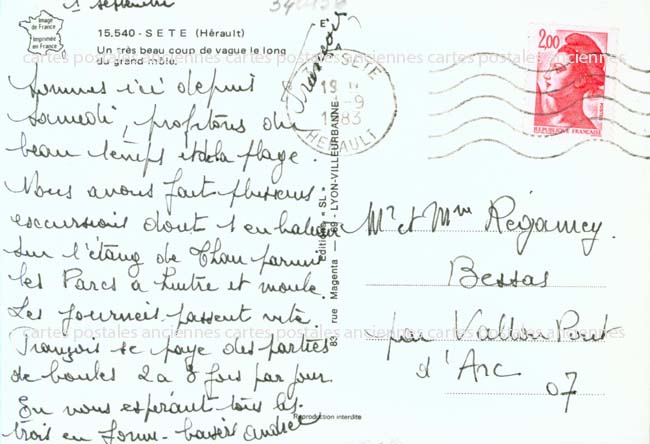 1 septembre
Image
de France
Imprimée
en France
15.540 - SETE (Hérault)
Un très beau coup de vague le long
du grand môle.
Sommes ici depuis
samedi, profitons du
beau temps et de la plage.
Nous avons fait plusieurs
excursions dont 1 en bateau
sur l'étang de Thau parmi
les Parcs à huitre et moule.
Les journeis passent vite.
François se paye des parties
de boules 2 à 3 fois par jour.
En vous espérant tous les
trois en forme - baisers Andrée
François
Editions "SL" - LYON-VILLEURBANNE
83, rue Magenta - 69
Reproduction interdite
SETE
1983
HERAULT
2,00
REPUBLIQUE FRANÇAISE
Mr et Mme Régamey
Bessas
par Vallon Pont
d'Arc
07
cartes postales anciennes cartes postales anciennes cartes postales anciennes
cartes postales anciennes cartes postales anciennes cartes postales anciennes